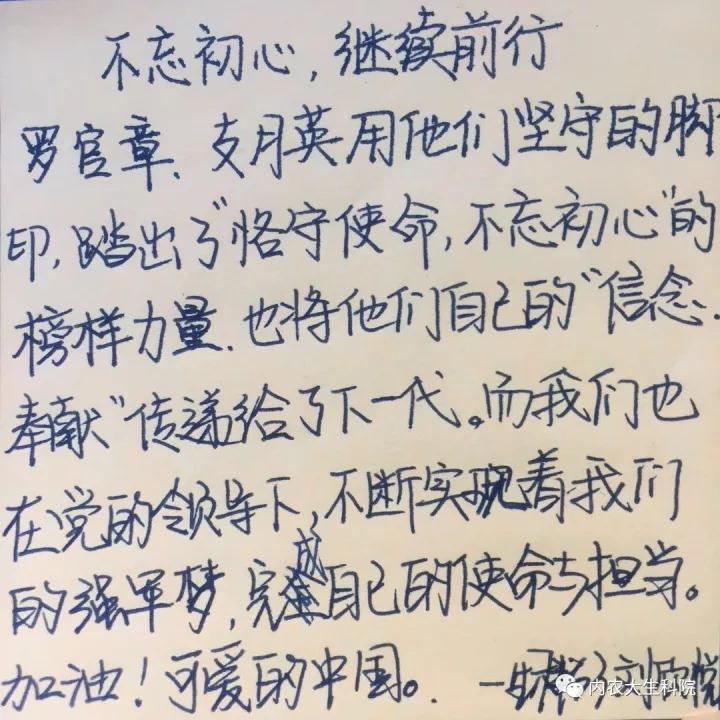 不忘初心,继续前行
罗官章、支月英用他们坚守的脚
印,踏出了“恪守使命,不忘初心”的
榜样力量.也将他们自己的“信念.
奉献”传递给了下一代。而我们也
在党的领导下,不断实现着我们
的强军梦,完成自己的使命与担当。
加油!可爱的中国。 一生科
内农大生科院